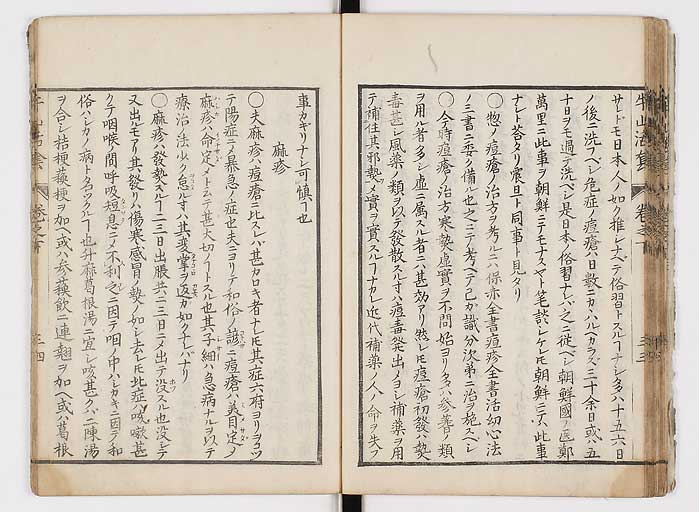 牛山活套 巻之下 三三
サレトモ日本人ノ如ク推シナヘテ俗習トスルヿナシ多ハ十五六日
ノ後ニ洗フヘシ危症ノ痘瘡ハ日数ニカヽハルヘカラス三十余日或ハ五
十日ヲモ過テ洗ヘシ是日本ノ俗習ナレハ之ニ従ヘシ朝鮮國ノ医鄭
萬里ニ此事ヲ朝鮮ニテモナスヤト筆談シケレモ朝鮮ニテハ此事
ナシト荅タリ震旦ト同事ト見タリ
〇惣ノ痘瘡ノ治方ヲ考ルニハ保赤全書痘疹全書活幼心法
ノ三書ニ委ク備レ也之ニテ考ヘテ己カ識分次第ニ治ヲ施スヘシ
〇今時痘瘡ノ治方寒熱虚實ヲ不問始ヨリ多ハ参耆ノ類
ヲ用ル者多シ虚ニ属スル者ニハ甚効アリ然レモ痘瘡初發ハ熱
毒甚シ風薬ノ類ヲ以テ發散スルヿハ痘毒發出ノヨシ補薬ヲ用
テ補住其邪熱メ實ヲ實スルヿナカレ近代補薬ノ人ノ命ヲ失フ
事カギリナシ可慎ヿ也
麻疹
〇夫麻疹ハ痘瘡ニ比スレハ甚カロキ者ナレモ其症六府ヨリヲコツ
テ陽症ニメ暴急ノ症也夫ニヨリテ和俗ノ諺ニ痘瘡ハ美目定メ
麻疹ハ命定メトテ甚大切ノヿトスル也其子細ハ急病ナルヲ以テ
療治ノ法少ク怠ルヿハ其変掌ヲ返カ如クナレハナリ
〇麻疹ハ發熱スルヿ二三日出脹共ニ三日ニメ出テ没スル也没シテ
又出ルモアリ其發リハ傷寒感冒ノ熱ノ如シ去レモ此症ハ咳嗽甚
クテ咽喉ノ間呼吸短息ニメ不利之ニ因テ咽ノ中ハシカキニ因テ和
俗ハシカノ病ト名ツクルヿ也升麻葛根湯ニ宜シ咳甚クハ二陳湯
ヲ合シ桔梗蘇梗ヲ加ヘ或ハ参蘇飲ニ連翹ヲ加ヘ或ハ葛根
牛山活套 巻之下 三四